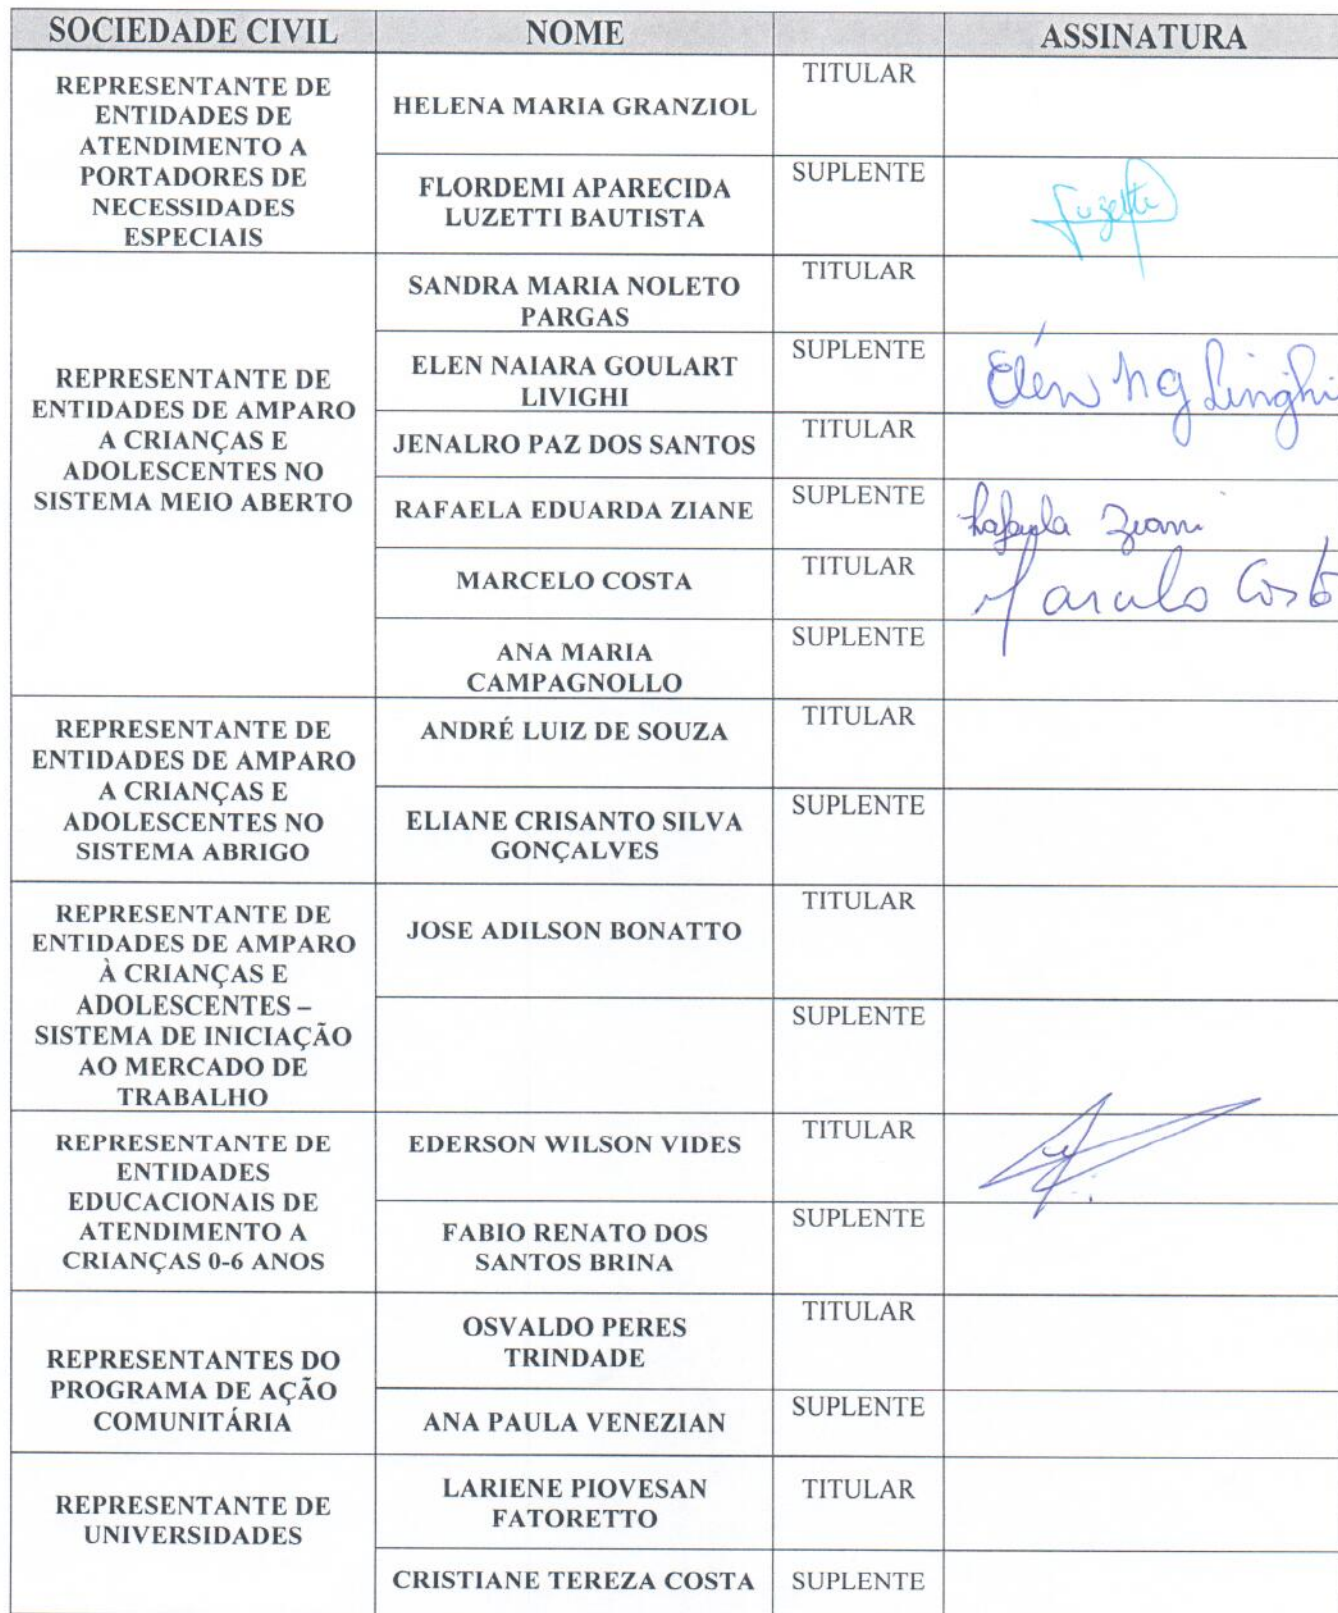 SOCIEDADE CIVIL NOME ASSINATURA
REPRESENTANTE DE
ENTIDADES DE
ATENDIMENTO A
PORTADORES DE
NECESSIDADES
ESPECIAIS
HELENA MARIA GRANZIOL
TITULAR
FLORDEMI APARECIDA
LUZETTI BAUTISTA
SUPLENTE
Luzetti
REPRESENTANTE DE
ENTIDADES DE AMPARO
A CRIANÇAS E
ADOLESCENTES NO
SISTEMA MEIO ABERTO
SANDRA MARIA NOLETO
PARGAS
TITULAR
ELEN NAIARA GOULART
LIVIGHI
SUPLENTE
Elen NG
JENALRO PAZ DOS SANTOS
TITULAR
RAFAELA EDUARDA ZIANE
SUPLENTE
Rafaela Ziani
MARCELO COSTA
TITULAR
Marcelo Costa
ANA MARIA
CAMPAGNOLLO
SUPLENTE
REPRESENTANTE DE
ENTIDADES DE AMPARO
A CRIANÇAS E
ADOLESCENTES NO
SISTEMA ABRIGO
ANDRÉ LUIZ DE SOUZA
TITULAR
ELIANE CRISANTO SILVA
GONÇALVES
SUPLENTE
REPRESENTANTE DE
ENTIDADES DE AMPARO
À CRIANÇAS E
ADOLESCENTES –
SISTEMA DE INICIAÇÃO
AO MERCADO DE
TRABALHO
JOSE ADILSON BONATTO
TITULAR
SUPLENTE
REPRESENTANTE DE
ENTIDADES
EDUCACIONAIS DE
ATENDIMENTO A
CRIANÇAS 0-6 ANOS
EDERSON WILSON VIDES
TITULAR
FABIO RENATO DOS
SANTOS BRINA
SUPLENTE
REPRESENTANTES DO
PROGRAMA DE AÇÃO
COMUNITÁRIA
OSVALDO PERES
TRINDADE
TITULAR
ANA PAULA VENEZIAN
SUPLENTE
REPRESENTANTE DE
UNIVERSIDADES
LARIENE PIOVESAN
FATORETTO
TITULAR
CRISTIANE TEREZA COSTA
SUPLENTE